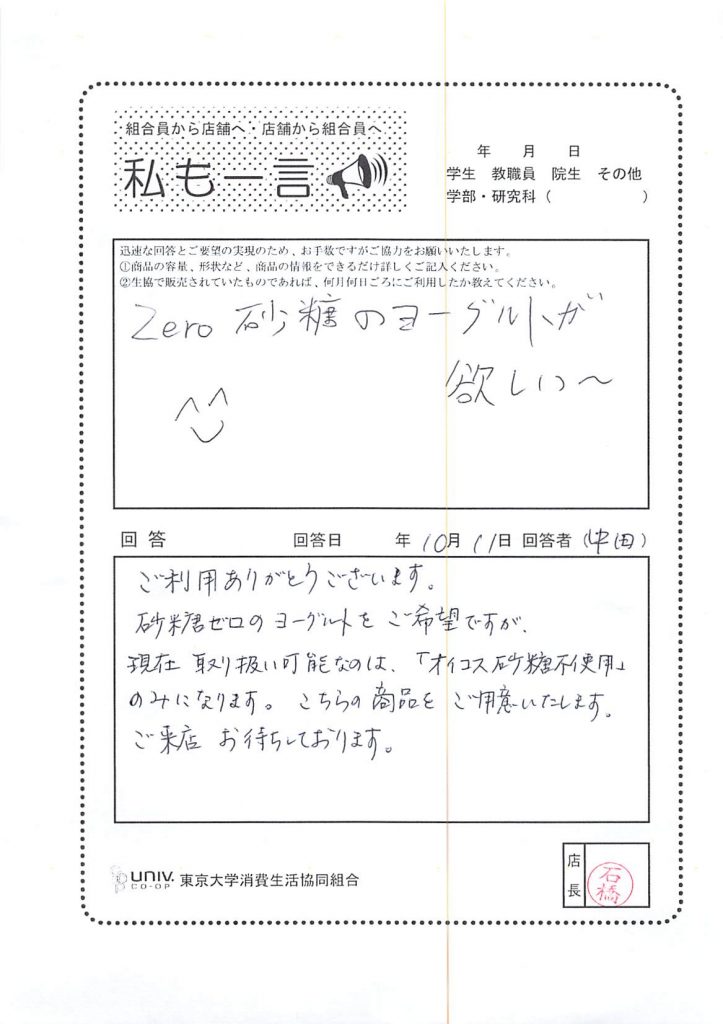 組合員から店舗へ・店舗から組合員へ
私も一言
年 月 日
学生 教職員 院生 その他
学部・研究科( )
迅速な回答とご要望の実現のため、お手数ですがご協力をお願いいたします。
①商品の容量、形状など、商品の情報をできるだけ詳しくご記入ください。
②生協で販売されていたものであれば、何月何日ごろにご利用したか教えてください。
Zero 砂糖のヨーグルトが
欲しい〜
回答 回答日 年 10月 11日 回答者 (中田)
ご利用ありがとうございます。
砂糖ゼロのヨーグルトをご希望ですが、
現在 取り扱い可能なのは、「オイコス砂糖不使用」
のみになります。こちらの商品をご用意いたします。
ご来店 お待ちしております。
UNIV. CO-OP 東京大学消費生活協同組合
店長
石橋